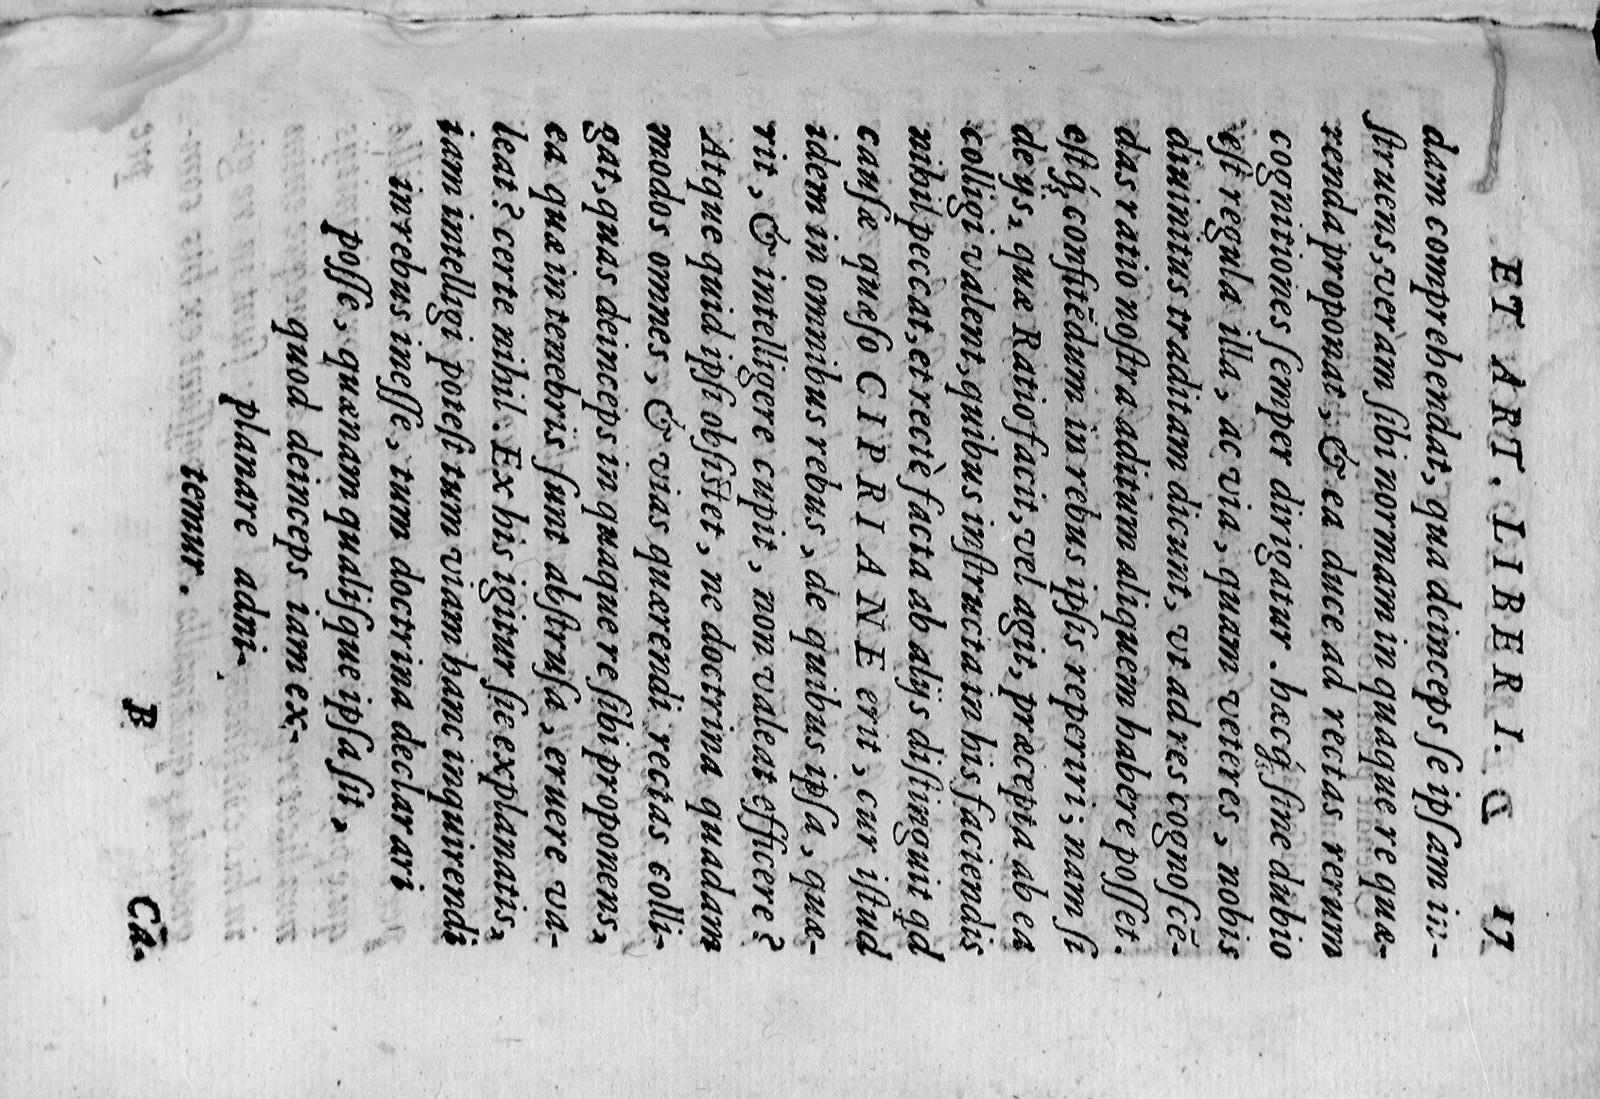 ET ART. LIBER I. 17
dam comprehendat, qua deinceps se ipsam in-
struens, veram sibi normam in quaque re quæ-
renda proponat, & ea duce ad rectas rerum
cognitiones semper dirigatur. hæcq́; sine dubio
est regula illa, ac via, quam veteres, nobis
diuinitus traditam dicunt, vt ad res cognoscē-
das ratio nostra aditum aliquem habere posset.
estq́; confitēdum in rebus ipsis reperiri; nam si
de ijs, quæ Ratio facit, vel agit, præcepta ab ea
colligi valent, quibus instructa in his faciendis
nihil peccat, et rectè facta ab alijs distinguit qd
causæ quæso CIPRIANE erit, cur istud
idem in omnibus rebus, de quibus ipsa, quæ-
rit, & intelligere cupit, non valeat efficere?
Atque quid ipsi obsistet, ne doctrina quadam
modos omnes, & vias quærendi rectas colli-
gat, quas deinceps in quaque re sibi proponens,
ea quæ in tenebris sunt abstrusa, eruere va-
leat? certe nihil. Ex his igitur sic explanatis,
iam intelligi potest tum viam hanc inquirendi
in rebus inesse, tum doctrina declarari
posse, quænam qualisque ipsa sit,
quod deinceps iam ex-
planare adni-
temur.
B Ca-